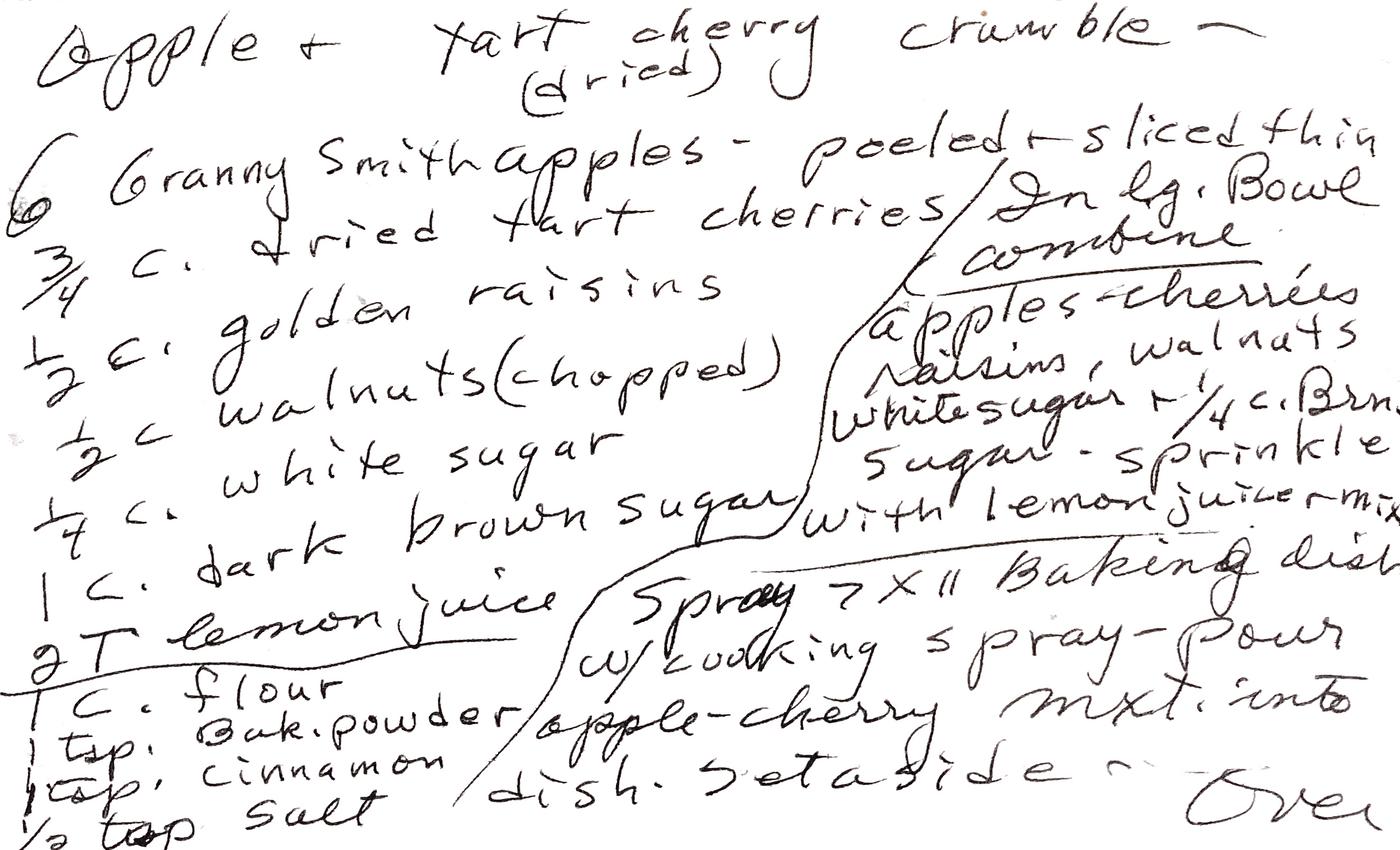 Apple + tart cherry crumble -
(dried)
6 Granny Smith apples - peeled + sliced thin
3/4 c. dried tart cherries
1/2 c. golden raisins
1/2 c walnuts (chopped)
1/4 c. white sugar
1 c. dark brown sugar
2 T lemon juice
1 c. flour
1 tsp. Bak. powder
1 tsp. cinnamon
1/2 tsp salt
In lg. Bowl
combine
apples - cherries
raisins, walnuts
white sugar + 1/4 c. Brn.
sugar - sprinkle
with lemon juice + mix
Spray 7 x 11 Baking dish
w/ cooking spray - pour
apple-cherry mxt. into
dish. Set aside -
Over